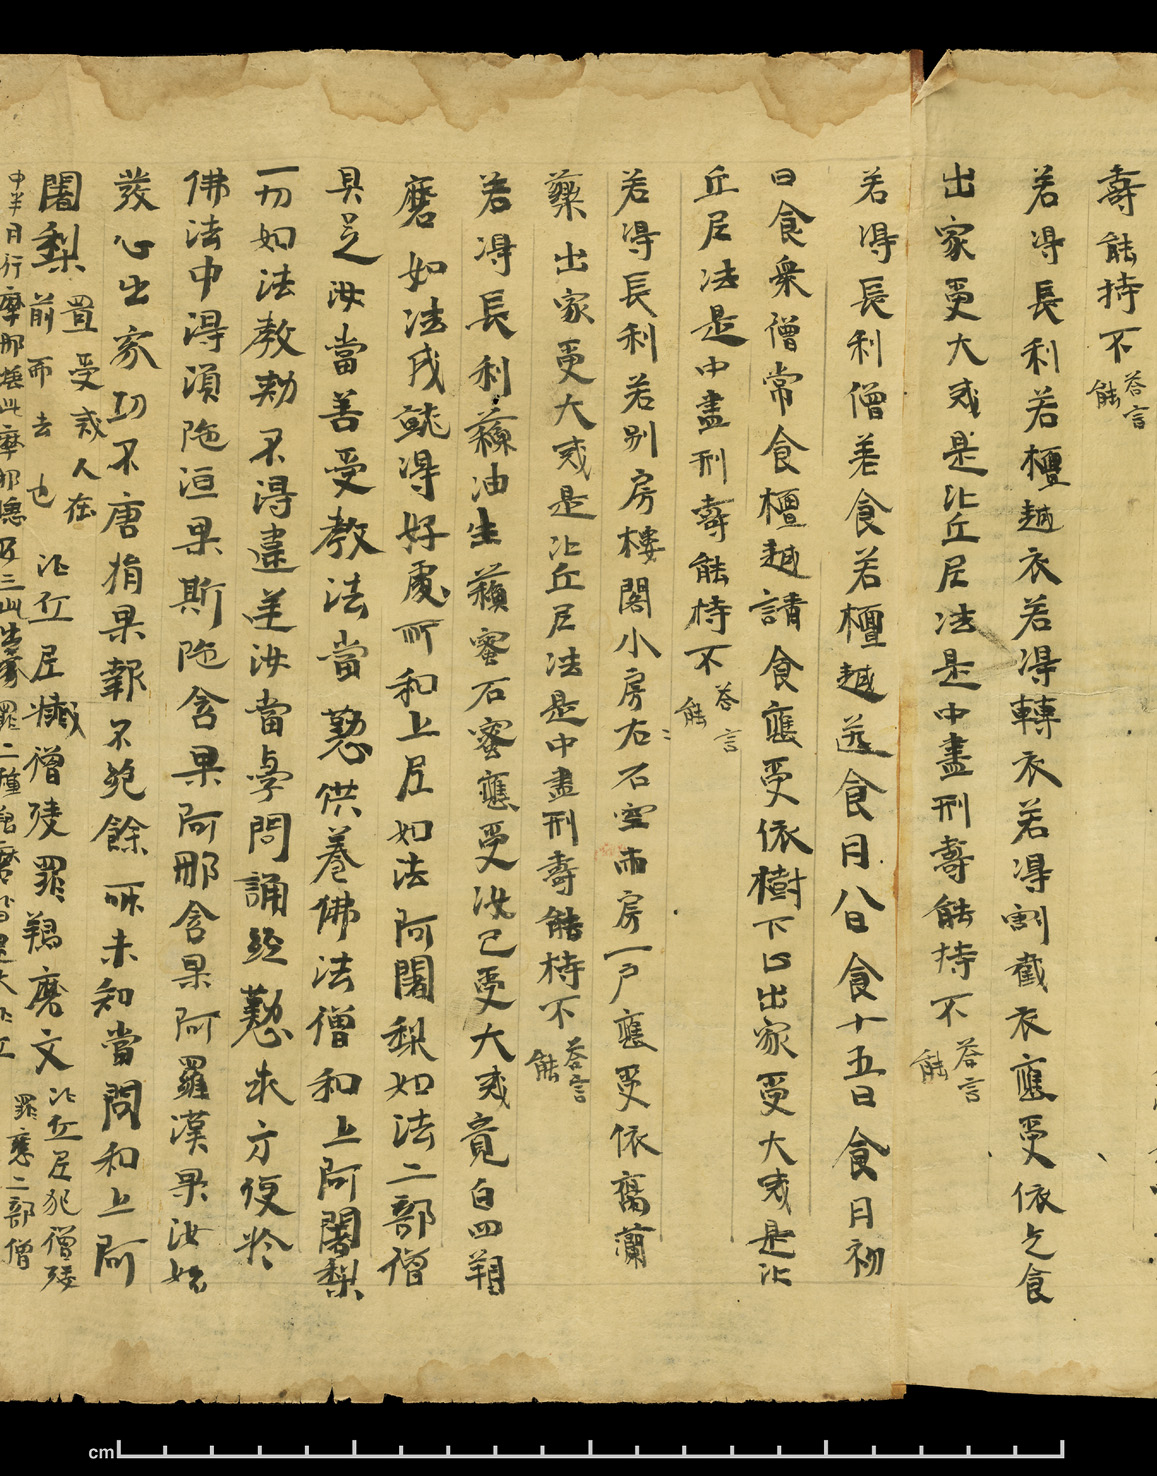 壽能持不 答言能
若得長利若檀越衣若得轉衣若得割截衣應受依乞食
出家受大戒是比丘尼法是中盡形壽能持不 答言能
若得長利僧差食若檀越送食月八日食十五日食月初
日食衆僧常食檀越請食應受依樹下比出家受大戒是比
丘尼法是中盡刑壽能持不 答言能
若得長利若別房樓閣小房石石室兩房一戶應受依腐蘭
藥出家受大戒是比丘尼法是中盡刑壽能持不 答言能
若得長利蘇油生蘇蜜石蜜應受汝已受大戒竟白四羯
磨如法成就得好處所和上尼如法阿闍梨如法二部僧
具足汝當善受教法當懃供養佛法僧和上阿闍梨
一切如法教勑不得違逆汝當學問誦經懃求方便於
佛法中得須陁洹果斯陁含果阿那含果阿羅漢果汝始
發心出家功不唐捐果報不絕餘所未知當問和上阿
闍梨 置受戒人在前而去也 比丘尼懺僧殘罪羯磨文 比丘尼犯僧殘罪應二部僧
中半月行摩那埵此摩那